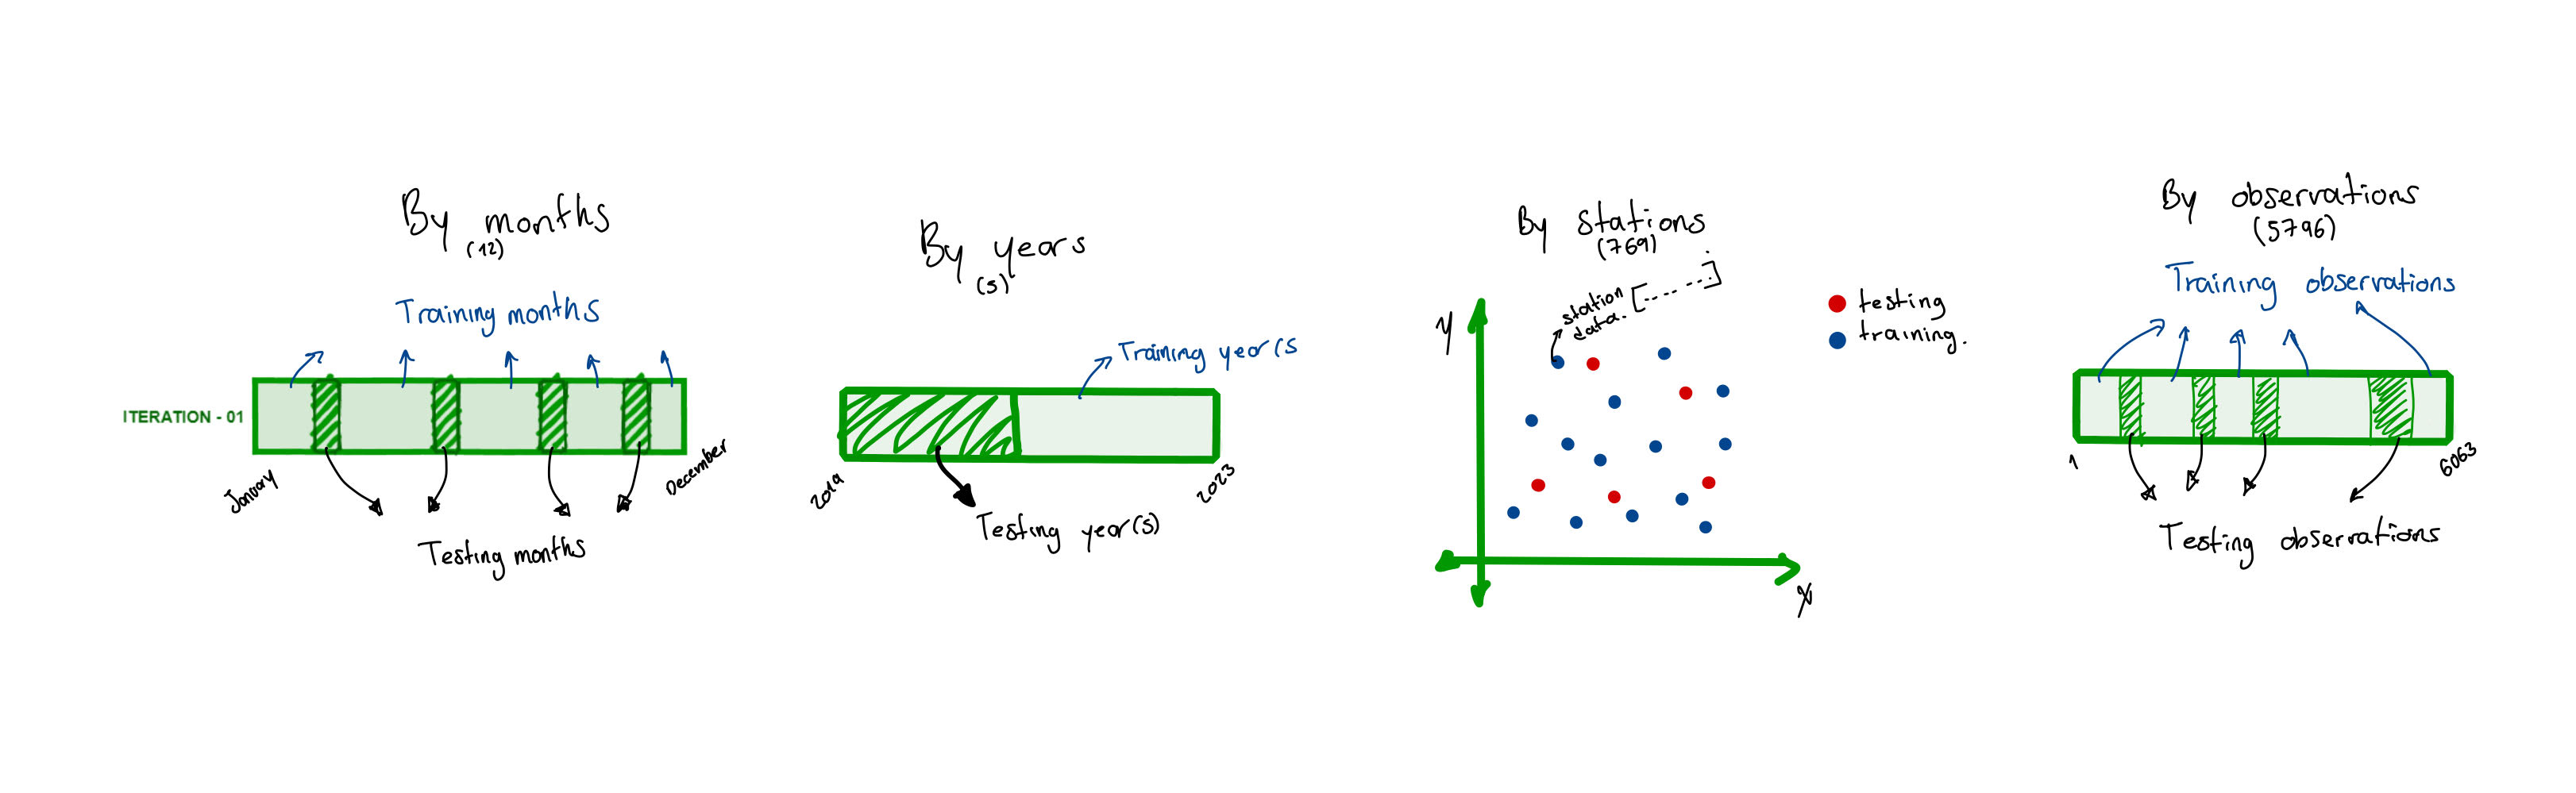 By months
(12)
Training months
ITERATION - 01
January
December
Testing months
By years
(5)
Training year(s
2019
2023
Testing year(s)
By stations
(769)
station
data.
[------]
y
x
testing
training.
By observations
(5796)
Training observations
1
6063
Testing observations